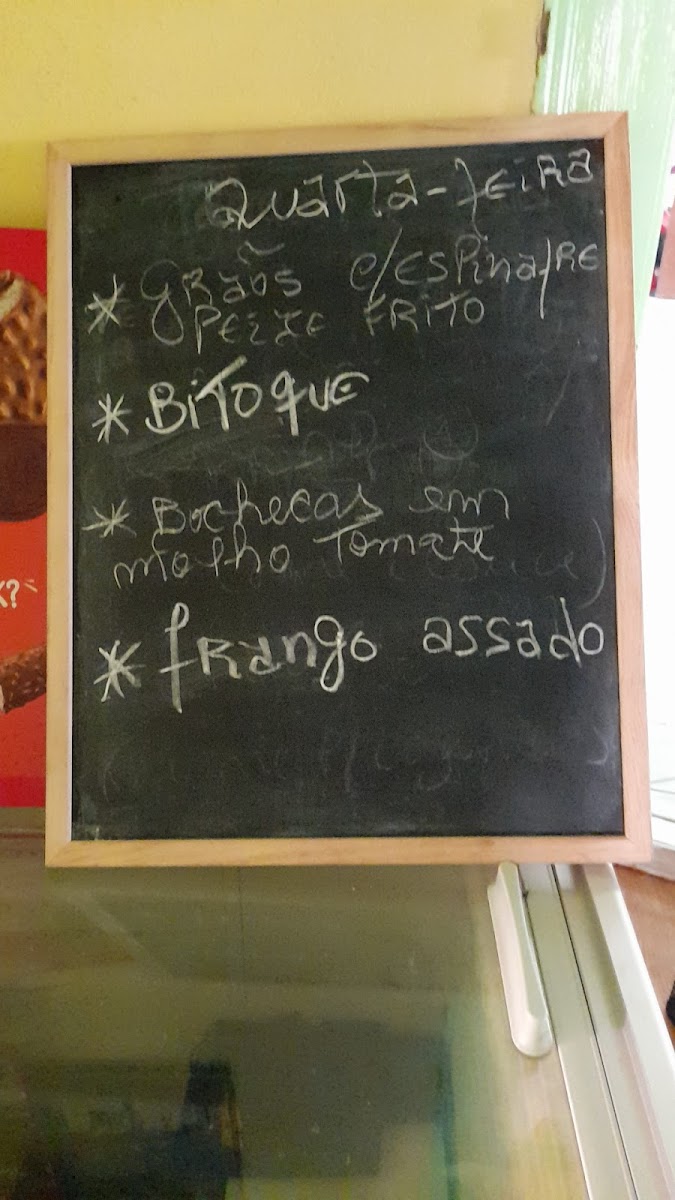 Quarta-feira
* Grãos c/espinafre
peixe frito
* Bitoque
* Bochecas em
molho Tomate
* frango assado
?